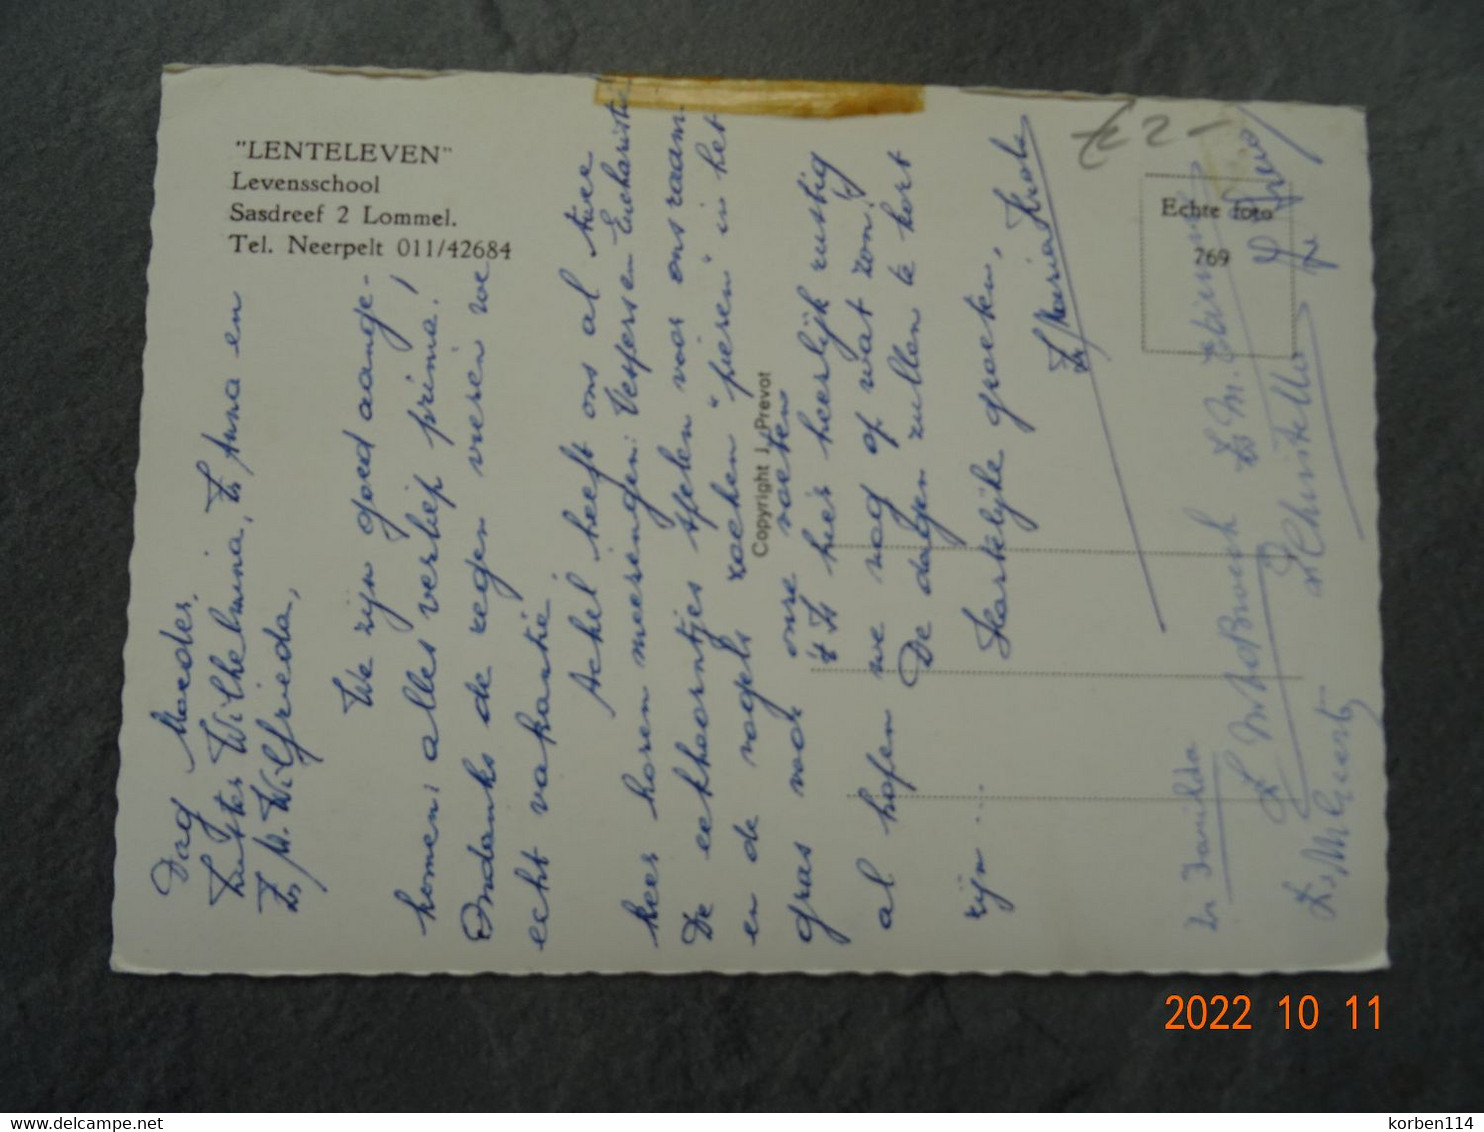 "LENTELEVEN"
Levensschool
Sasdreef 2 Lommel.
Tel. Neerpelt 011/42684
Dag Moeder,
Zuster Wilhelmina, Zr Anna en
Zr M. Wilfrieda,
We zijn goed aange-
komen: alles verliep prima!
Ondanks de regen vieren we
echt vakantie
Achel heeft ons al twee
keer horen meezingen: Vespers en Eucharistie
De eekhoorntjes spelen voor ons raam
en de vogels zoeken "pieren" in het
gras voor onze voeten
't Is hier heerlijk rustig
al hopen we nog op wat zon!
De dagen zullen te kort
zijn ...
Hartelijke groeten,
Zr Maria
Copyright J. Prevot
€ 2-
Echte foto
769
Zr M.
Zr Christella
2022 10 11
delcampe.net
korben114